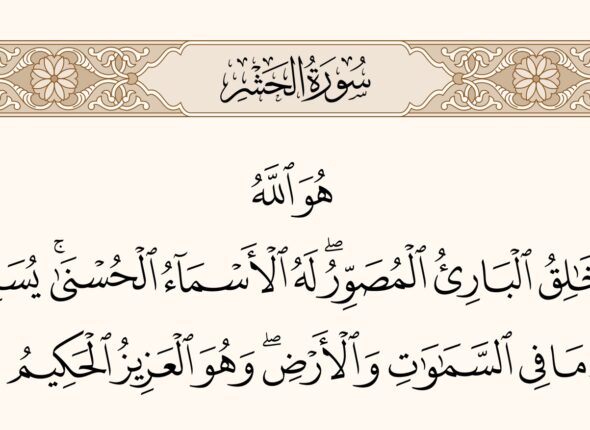 سُورَةُ الحَشْرِ
هُوَ ٱللَّهُ
ٱلْبَارِئُ ٱلْمُصَوِّرُ ۖ لَهُ ٱلْأَسْمَآءُ ٱلْحُسْنَىٰ ۚ
مَا فِى ٱلسَّمَٰوَٰتِ وَٱلْأَرْضِ ۖ وَهُوَ ٱلْعَزِيزُ ٱلْحَكِيمُ